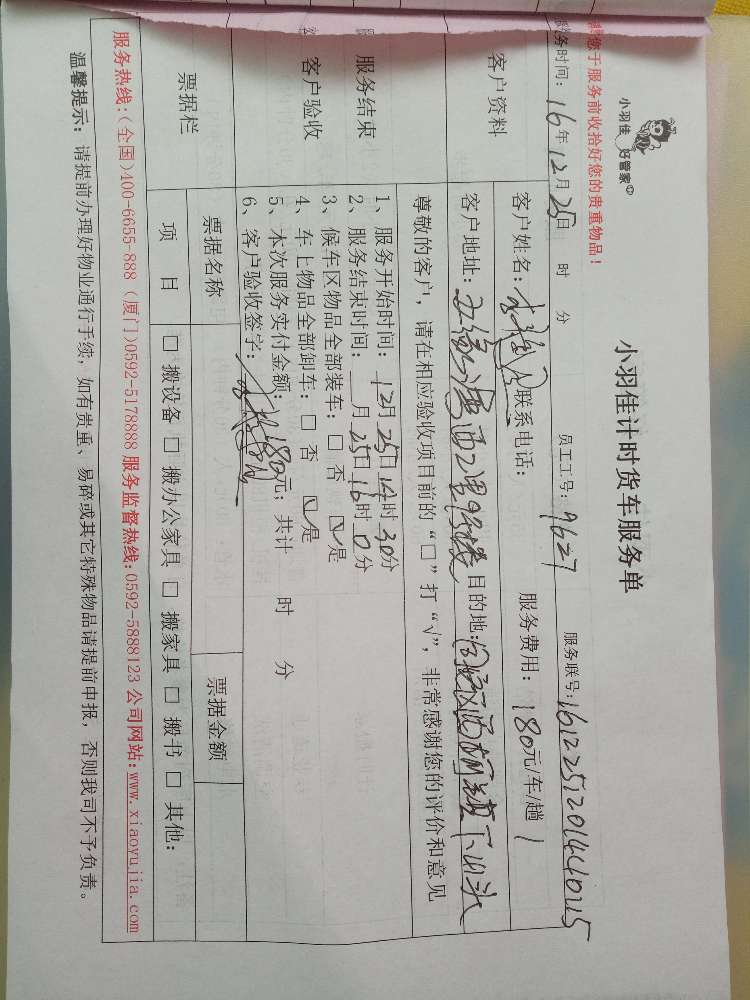 小羽佳 好管家
小羽佳计时货车服务单
您于服务前收拾好您的贵重物品！
务时间：16年12月25日 时 分 员工工号：9627 服务联号：161225120144015
客户资料
客户姓名： 联系电话： 服务费用：180元/车/趟 1
客户地址： 目的地：
尊敬的客户，请在相应验收项目前的“□”打“√”，非常感谢您的评价和意见
服务结束
客户验收
1、服务开始时间：12月25日14时30分
2、服务结束时间： 月25日16时0分
3、候车区物品全部装车：□ 否 ☑是
4、车上物品全部卸车：□ 否 ☑是
5、本次服务实付金额：180元；共计 时 分
6、客户验收签字：
票据栏
票据名称 票据金额
项 目 □ 搬设备 □ 搬办公家具 □ 搬家具 □ 搬书 □ 其他：
服务热线：(全国)400-6655-888 (厦门)0592-5178888 服务监督热线：0592-5888123 公司网站：www.xiaoyujia.com
温馨提示：请提前办理好物业通行手续，如有贵重、易碎或其它特殊物品请提前申报，否则我司不予负责。